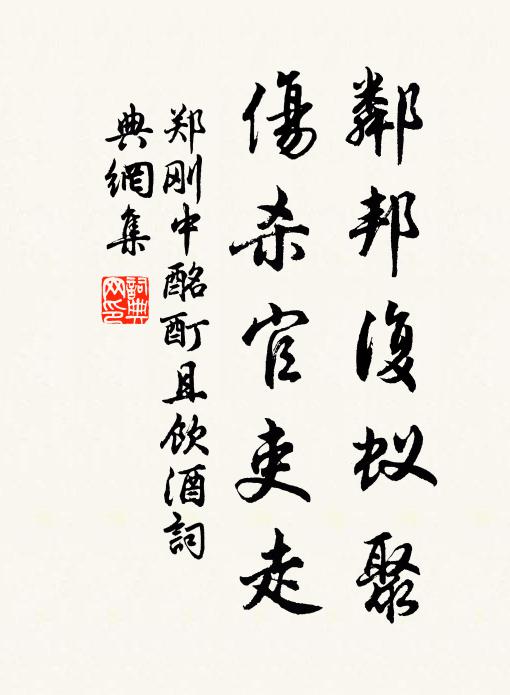 鄰邦復蚁聚
傷杀官吏走
郑刚中酩酊且饮酒詞
典網集
詞典
网印